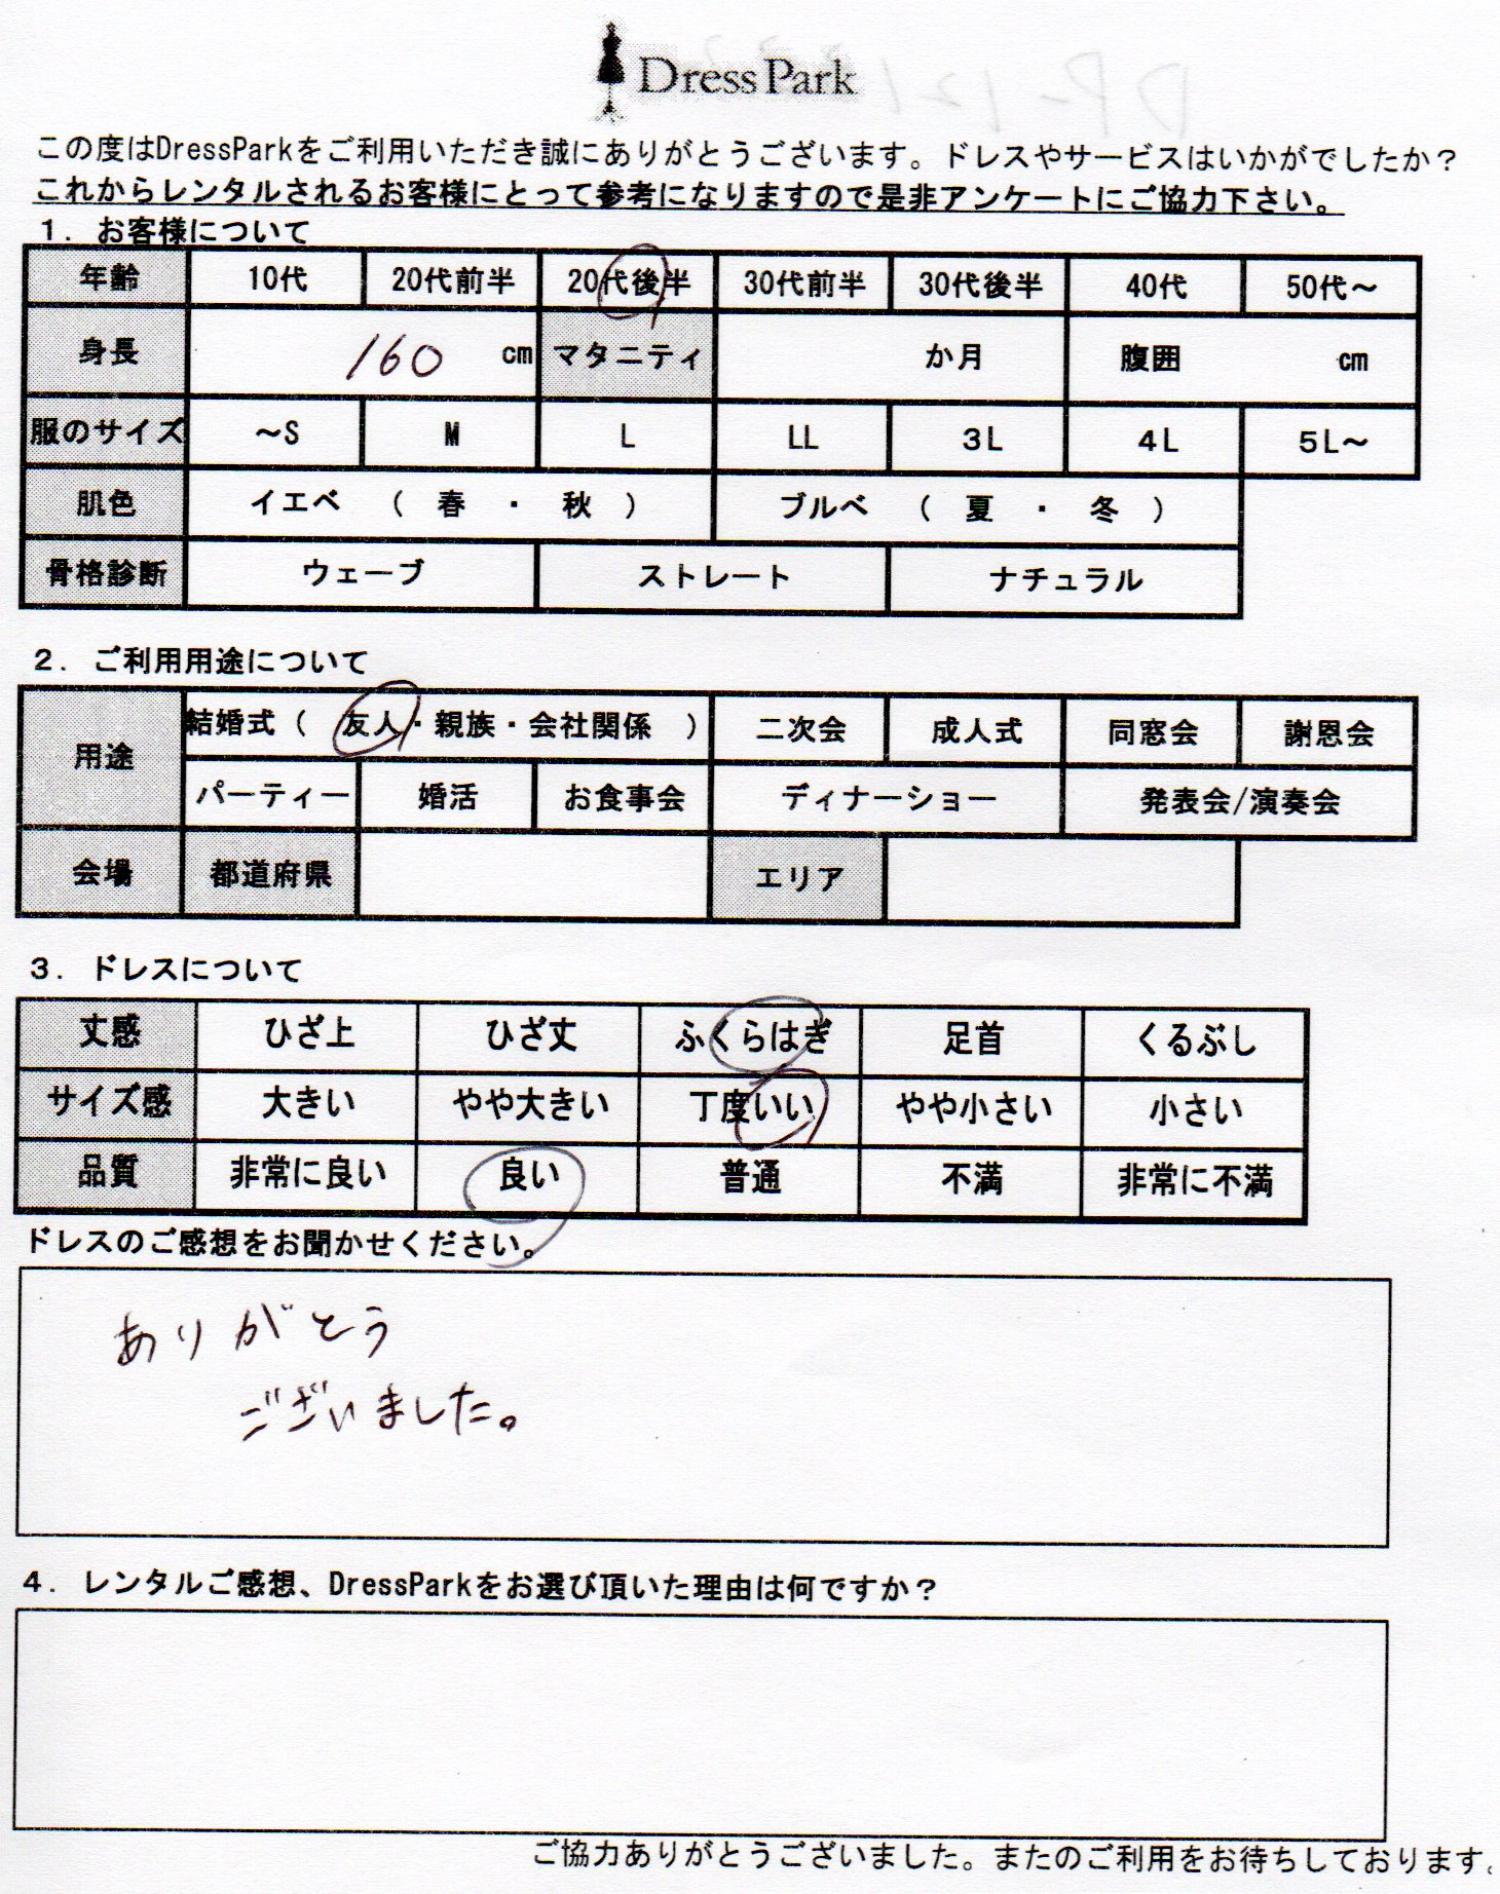 DressPark
この度はDressParkをご利用いただき誠にありがとうございます。ドレスやサービスはいかがでしたか？
これからレンタルされるお客様にとって参考になりますので是非アンケートにご協力下さい。
１．お客様について
年齢 10代 20代前半 20代後半 30代前半 30代後半 40代 50代～
身長 160 cm マタニティ か月 腹囲 cm
服のサイズ ～S M L LL 3L 4L 5L～
肌色 イエベ （ 春 ・ 秋 ） ブルベ （ 夏 ・ 冬 ）
骨格診断 ウェーブ ストレート ナチュラル
２．ご利用用途について
用途 結婚式（ 友人・親族・会社関係 ） 二次会 成人式 同窓会 謝恩会
パーティー 婚活 お食事会 ディナーショー 発表会/演奏会
会場 都道府県 エリア
３．ドレスについて
丈感 ひざ上 ひざ丈 ふくらはぎ 足首 くるぶし
サイズ感 大きい やや大きい 丁度いい やや小さい 小さい
品質 非常に良い 良い 普通 不満 非常に不満
ドレスのご感想をお聞かせください。
ありがとう
ございました。
４．レンタルご感想、DressParkをお選び頂いた理由は何ですか？
ご協力ありがとうございました。またのご利用をお待ちしております。